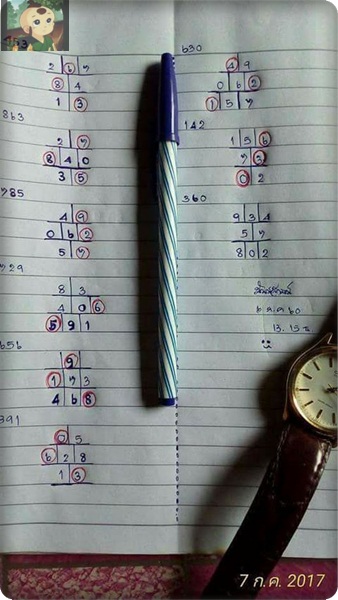 2 6 7
8 4
1 3
863
2 7
8 4 0
3 5
785
4 9
0 6 2
5 7
729
8 3
4 0 6
5 9 1
656
9
1 7 3
4 6 8
391
0 5
6 2 8
1 3
630
4 9
0 6 2
1 5 7
142
1 5 6
7 3
0 2
360
9 3 4
5 7
8 0 2
13.15 น
7 ก.ค. 2017